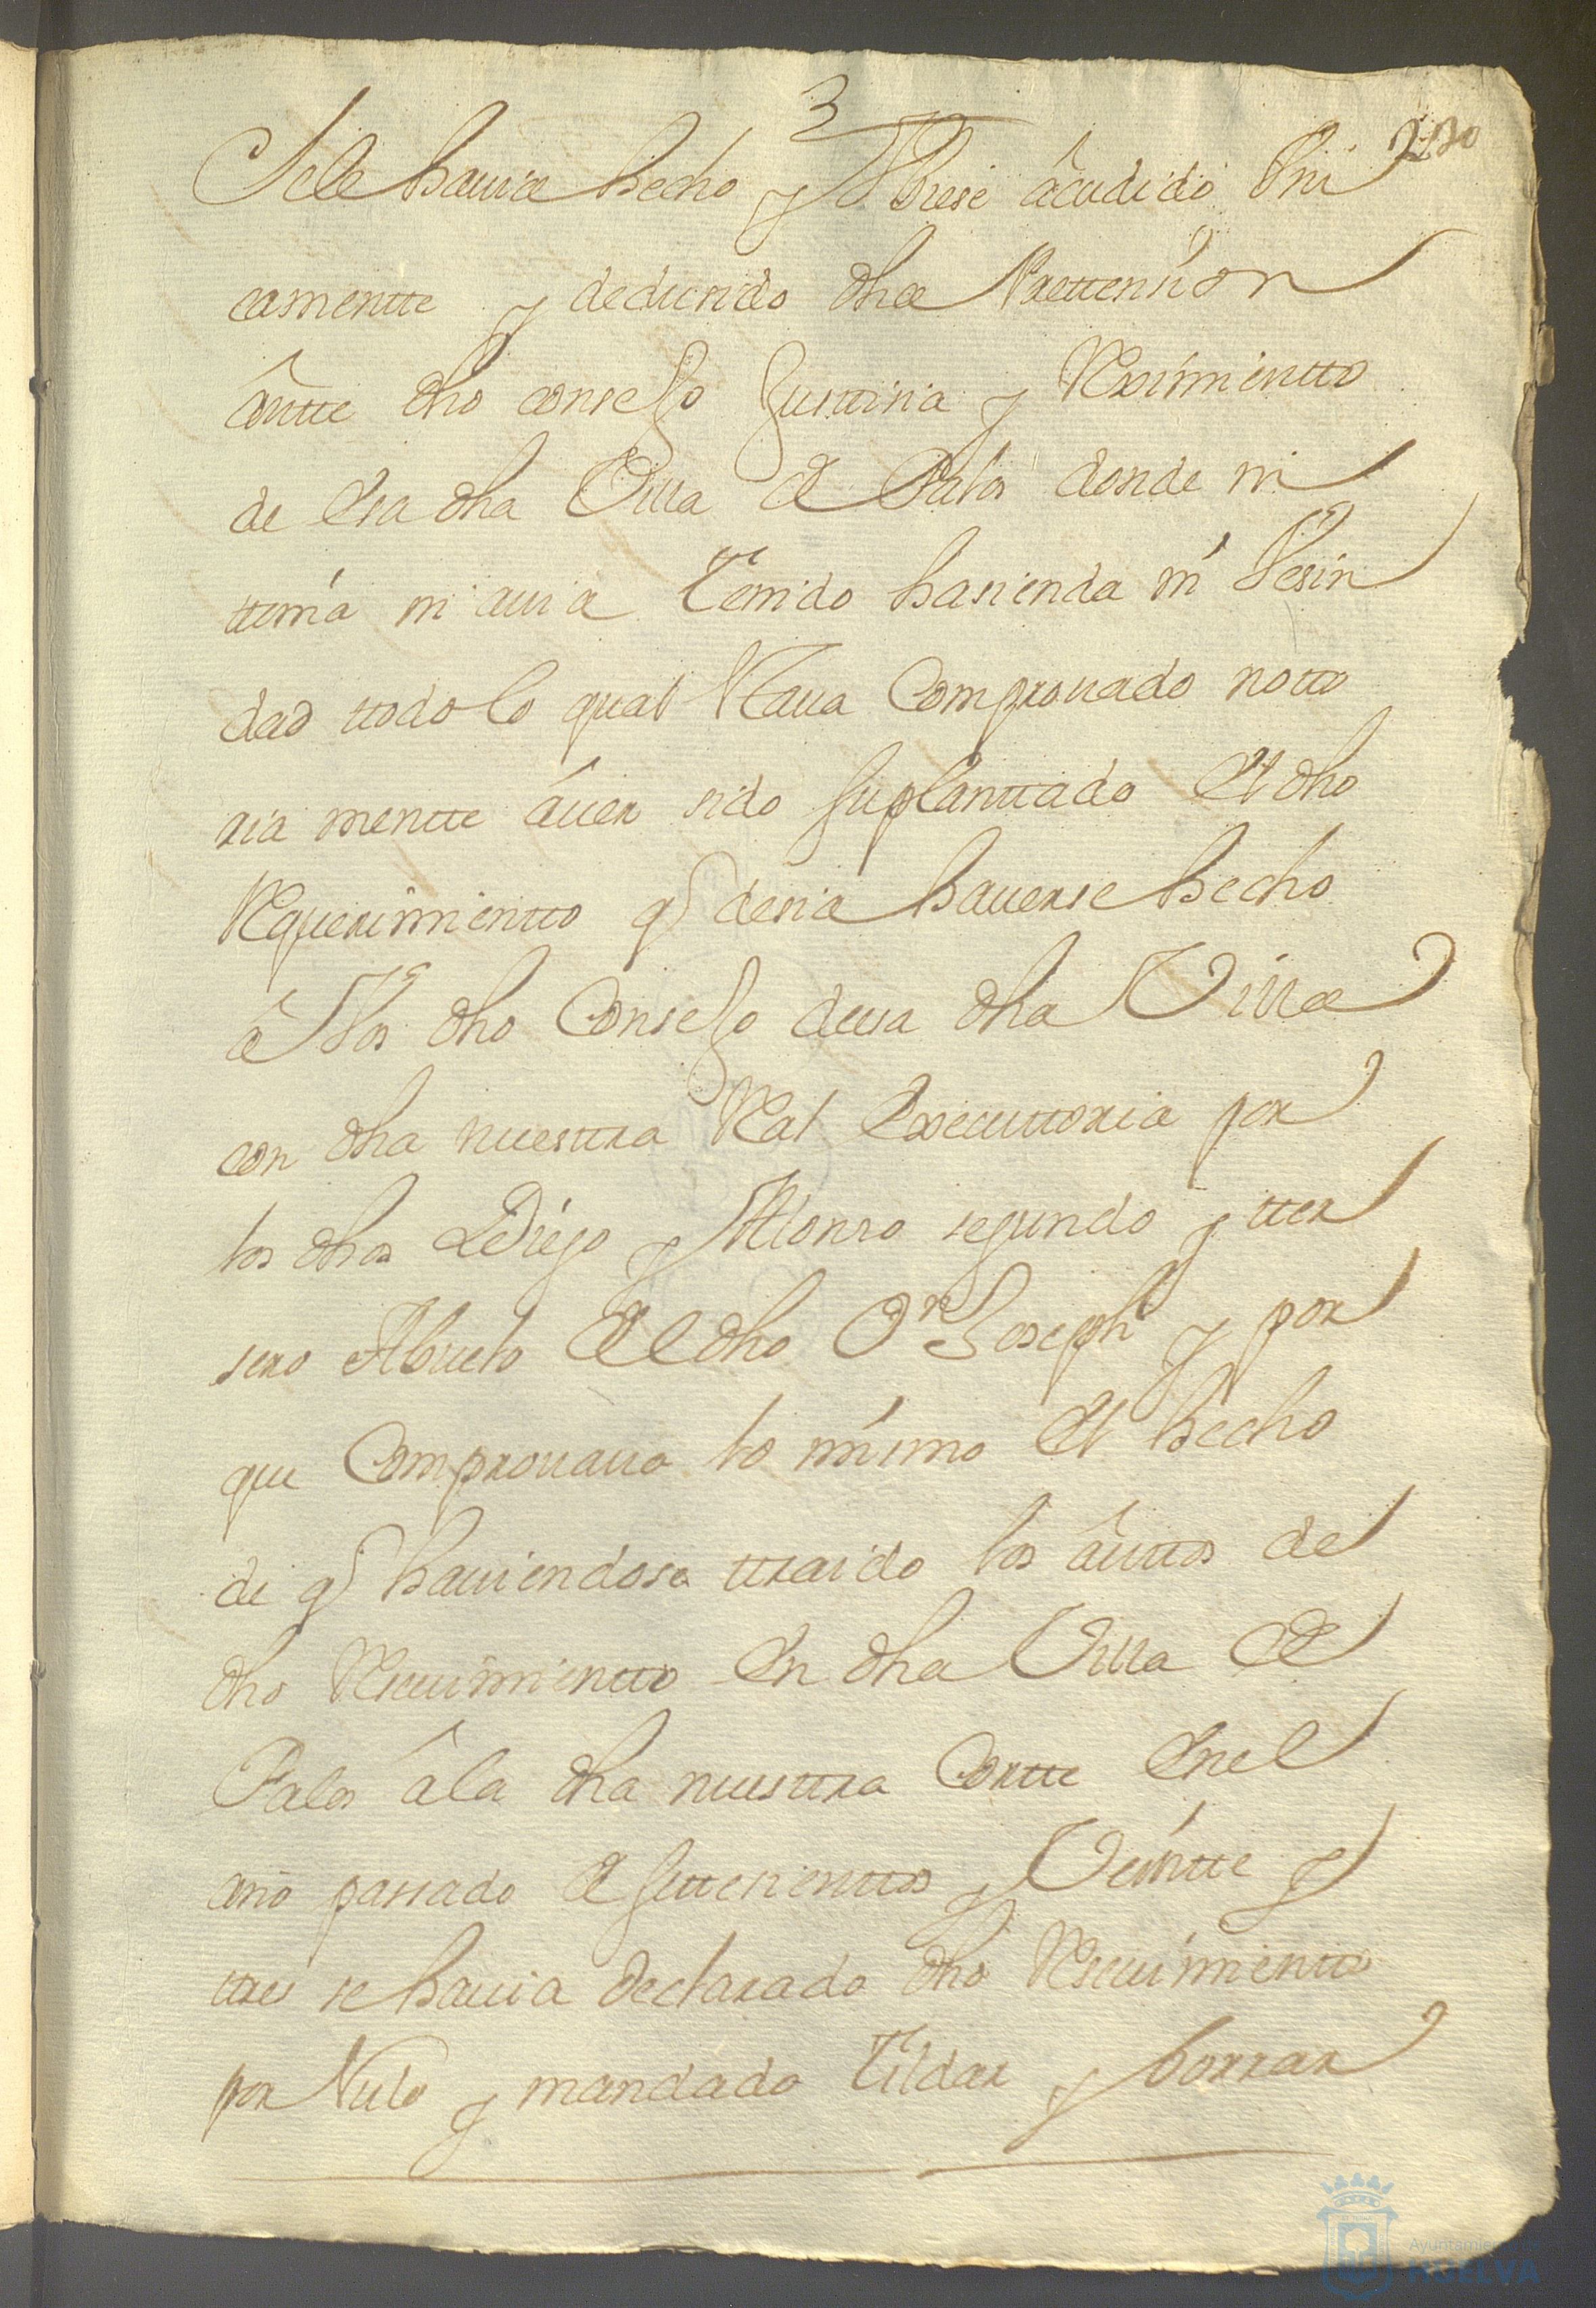 3
230
Sele hauia hecho y ubiese acudido Vni
camentte y dedusido dha Prettension
antte dho consejo Justtisia y Reximientto
de esa dha Villa de Palos donde ni
ttenia ni auia Tenido hasienda ni Vesin
dad ttodo lo qual Staua Comprouado notto
ria mentte áuer sido suplanttado El dho
Requerimientto q desia hauerse hecho
â Vos dho Consejo de esa dha Villa
con dha nuesttra Real Executtoria por
los dhos Diego y Alonso segundo y tter
sero Abuelo del dho Dn Joseph y por
que Comprouaua lo mismo El hecho
de q hauiendose ttraido los âuttos de
dho Reseuimientto En dha Villa de
Palos â la dha nuesttra Cortte En el
año passado de settesienttos y Veintte y
ttres se hauia declarado dho Reseuimientto
por Nulo y mandado Tildar y borrar
Ayuntamiento de
HUELVA